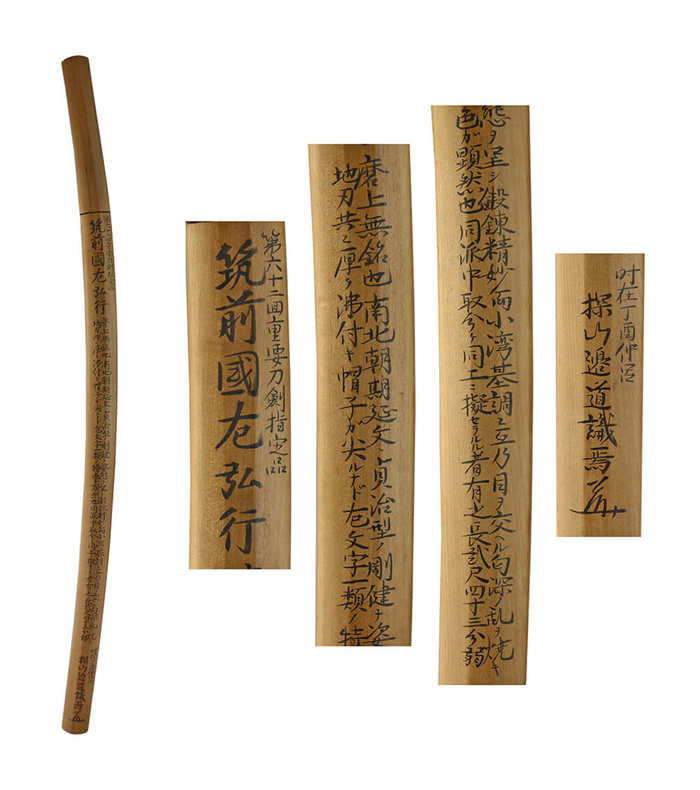 第六十二回重要刀剣指定品
筑前國左弘行
磨上無銘也南北朝期延文、貞治型ノ剛健ナ姿
地刃共ニ厚ク沸付キ帽子ガ尖ルナド左文字一類ノ特
態ヲ呈シ鍛錬精妙而小湾基調ニ互乃目ヲ交ヘル匂深ノ乱ヲ焼キ
色ガ顕然也同派中取分ケ同工ニ擬セラルル者有之長弐尺四寸三分弱
时在丁酉仲呂
探山邉道識焉